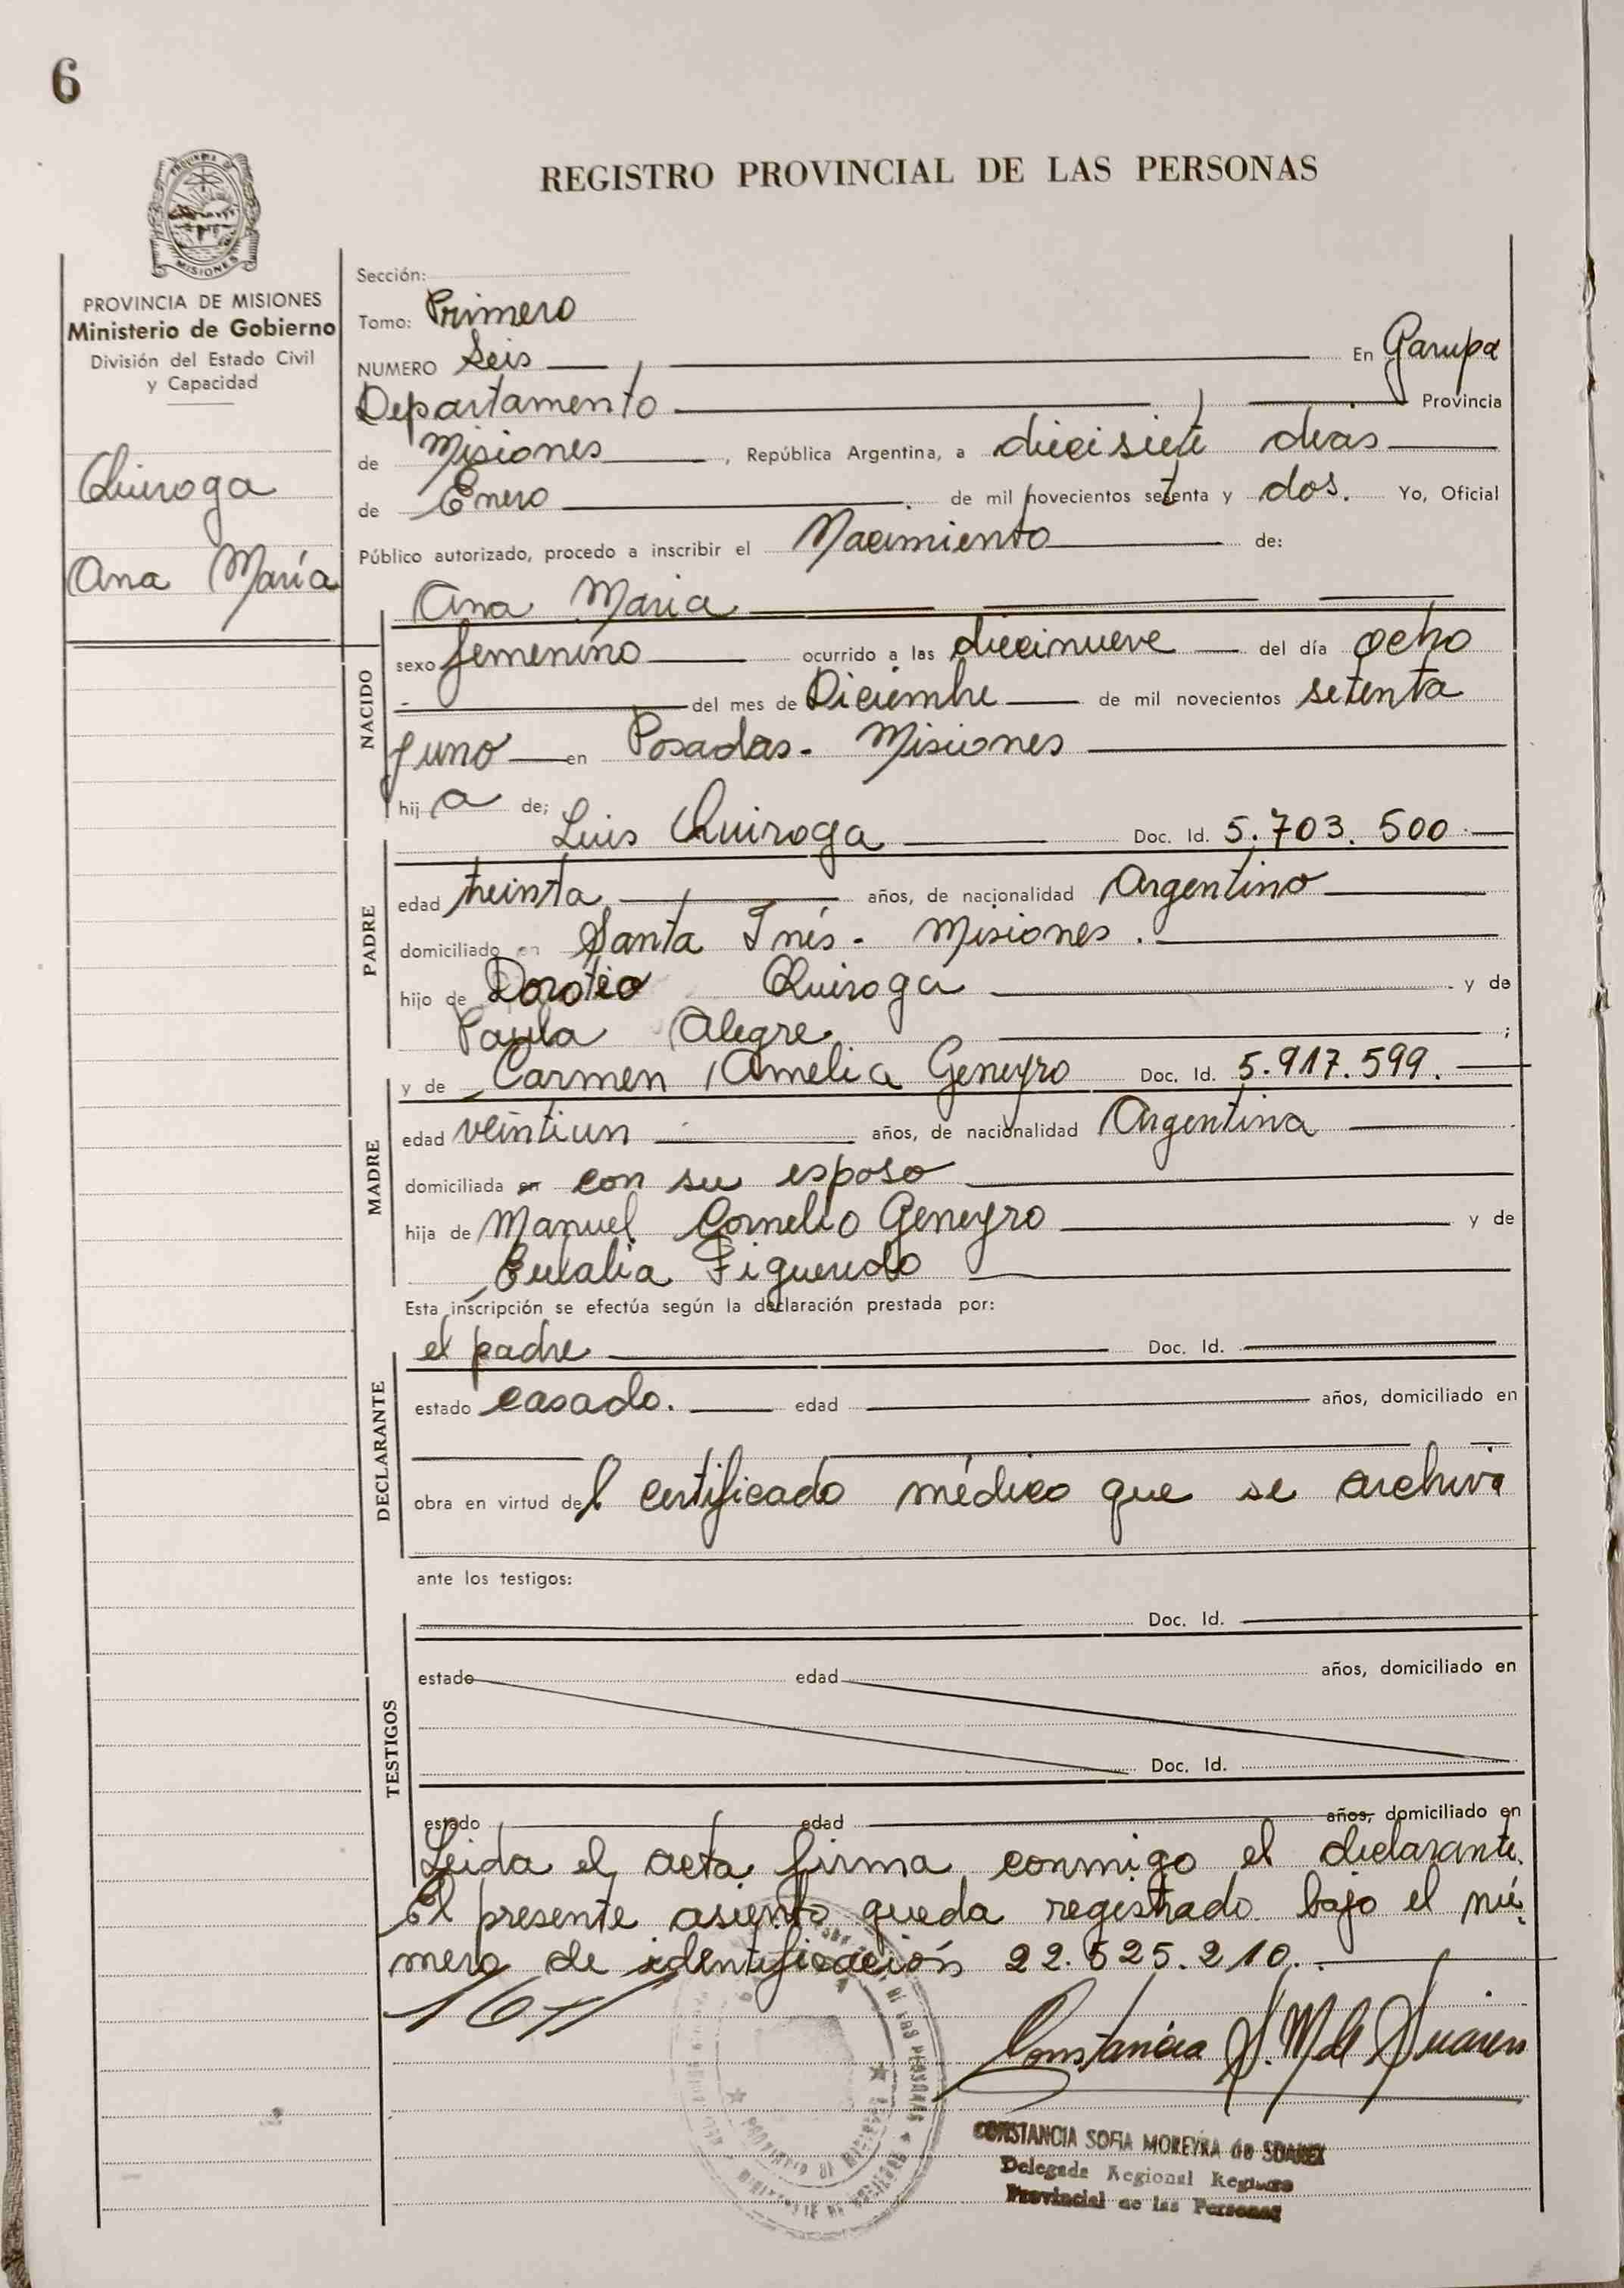 6
REGISTRO PROVINCIAL DE LAS PERSONAS
PROVINCIA DE
MISIONES
PROVINCIA DE MISIONES
Ministerio de Gobierno
División del Estado Civil
y Capacidad
Quiroga
Ana María
Sección:
Tomo: Primero
NUMERO Seis En Garupa
Departamento Provincia
de Misiones, República Argentina, a diecisiete dias
de Enero de mil novecientos setenta y dos. Yo, Oficial
Público autorizado, procedo a inscribir el Nacimiento de:
Ana Maria
NACIDO
sexo femenino ocurrido a las diecinueve del día ocho
del mes de Diciembre de mil novecientos setenta
y uno en Posadas - Misiones
hij a de;
PADRE
Luis Quiroga Doc. Id. 5.703.500
edad treinta años, de nacionalidad Argentino
domiciliado en Santa Inés - Misiones.
hijo de Doroteo Quiroga y de
Paula Alegre ;
MADRE
y de Carmen Amelia Geneyro Doc. Id. 5.917.599.
edad veintiun años, de nacionalidad Argentina
domiciliada en con su esposo
hija de Manuel Cornelio Geneyro y de
Eulalia Figueredo
Esta inscripción se efectúa según la declaración prestada por:
DECLARANTE
el padre Doc. Id.
estado casado. edad años, domiciliado en
obra en virtud del certificado médico que se archiva
ante los testigos:
TESTIGOS
Doc. Id.
estado edad años, domiciliado en
Doc. Id.
estado edad años, domiciliado en
Leida el acta firma conmigo el declarante.
El presente asiento queda registrado bajo el nú-
mero de identificación 22.525.210.
Constancia S. M de Suarez
CONSTANCIA SOFIA MOREYRA de SUAREZ
Delegada Regional Registro
Provincial de las Personas